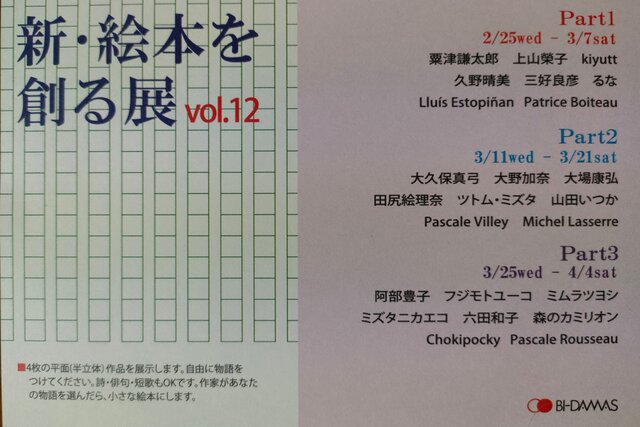 新・絵本を
創る展 vol.12
■4枚の平面(半立体)作品を展示します。自由に物語を
つけてください。詩・俳句・短歌もOKです。作家があなた
の物語を選んだら、小さな絵本にします。
Part1
2/25wed - 3/7sat
粟津謙太郎 上山榮子 kiyutt
久野晴美 三好良彦 るな
Lluís Estopiñan Patrice Boiteau
Part2
3/11wed - 3/21sat
大久保真弓 大野加奈 大場康弘
田尻絵理奈 ツトム・ミズタ 山田いつか
Pascale Villey Michel Lasserre
Part3
3/25wed - 4/4sat
阿部豊子 フジモトユーコ ミムラツヨシ
ミズタニカエコ 六田和子 森のカミリオン
Chokipocky Pascale Rousseau
BI-DAMAS